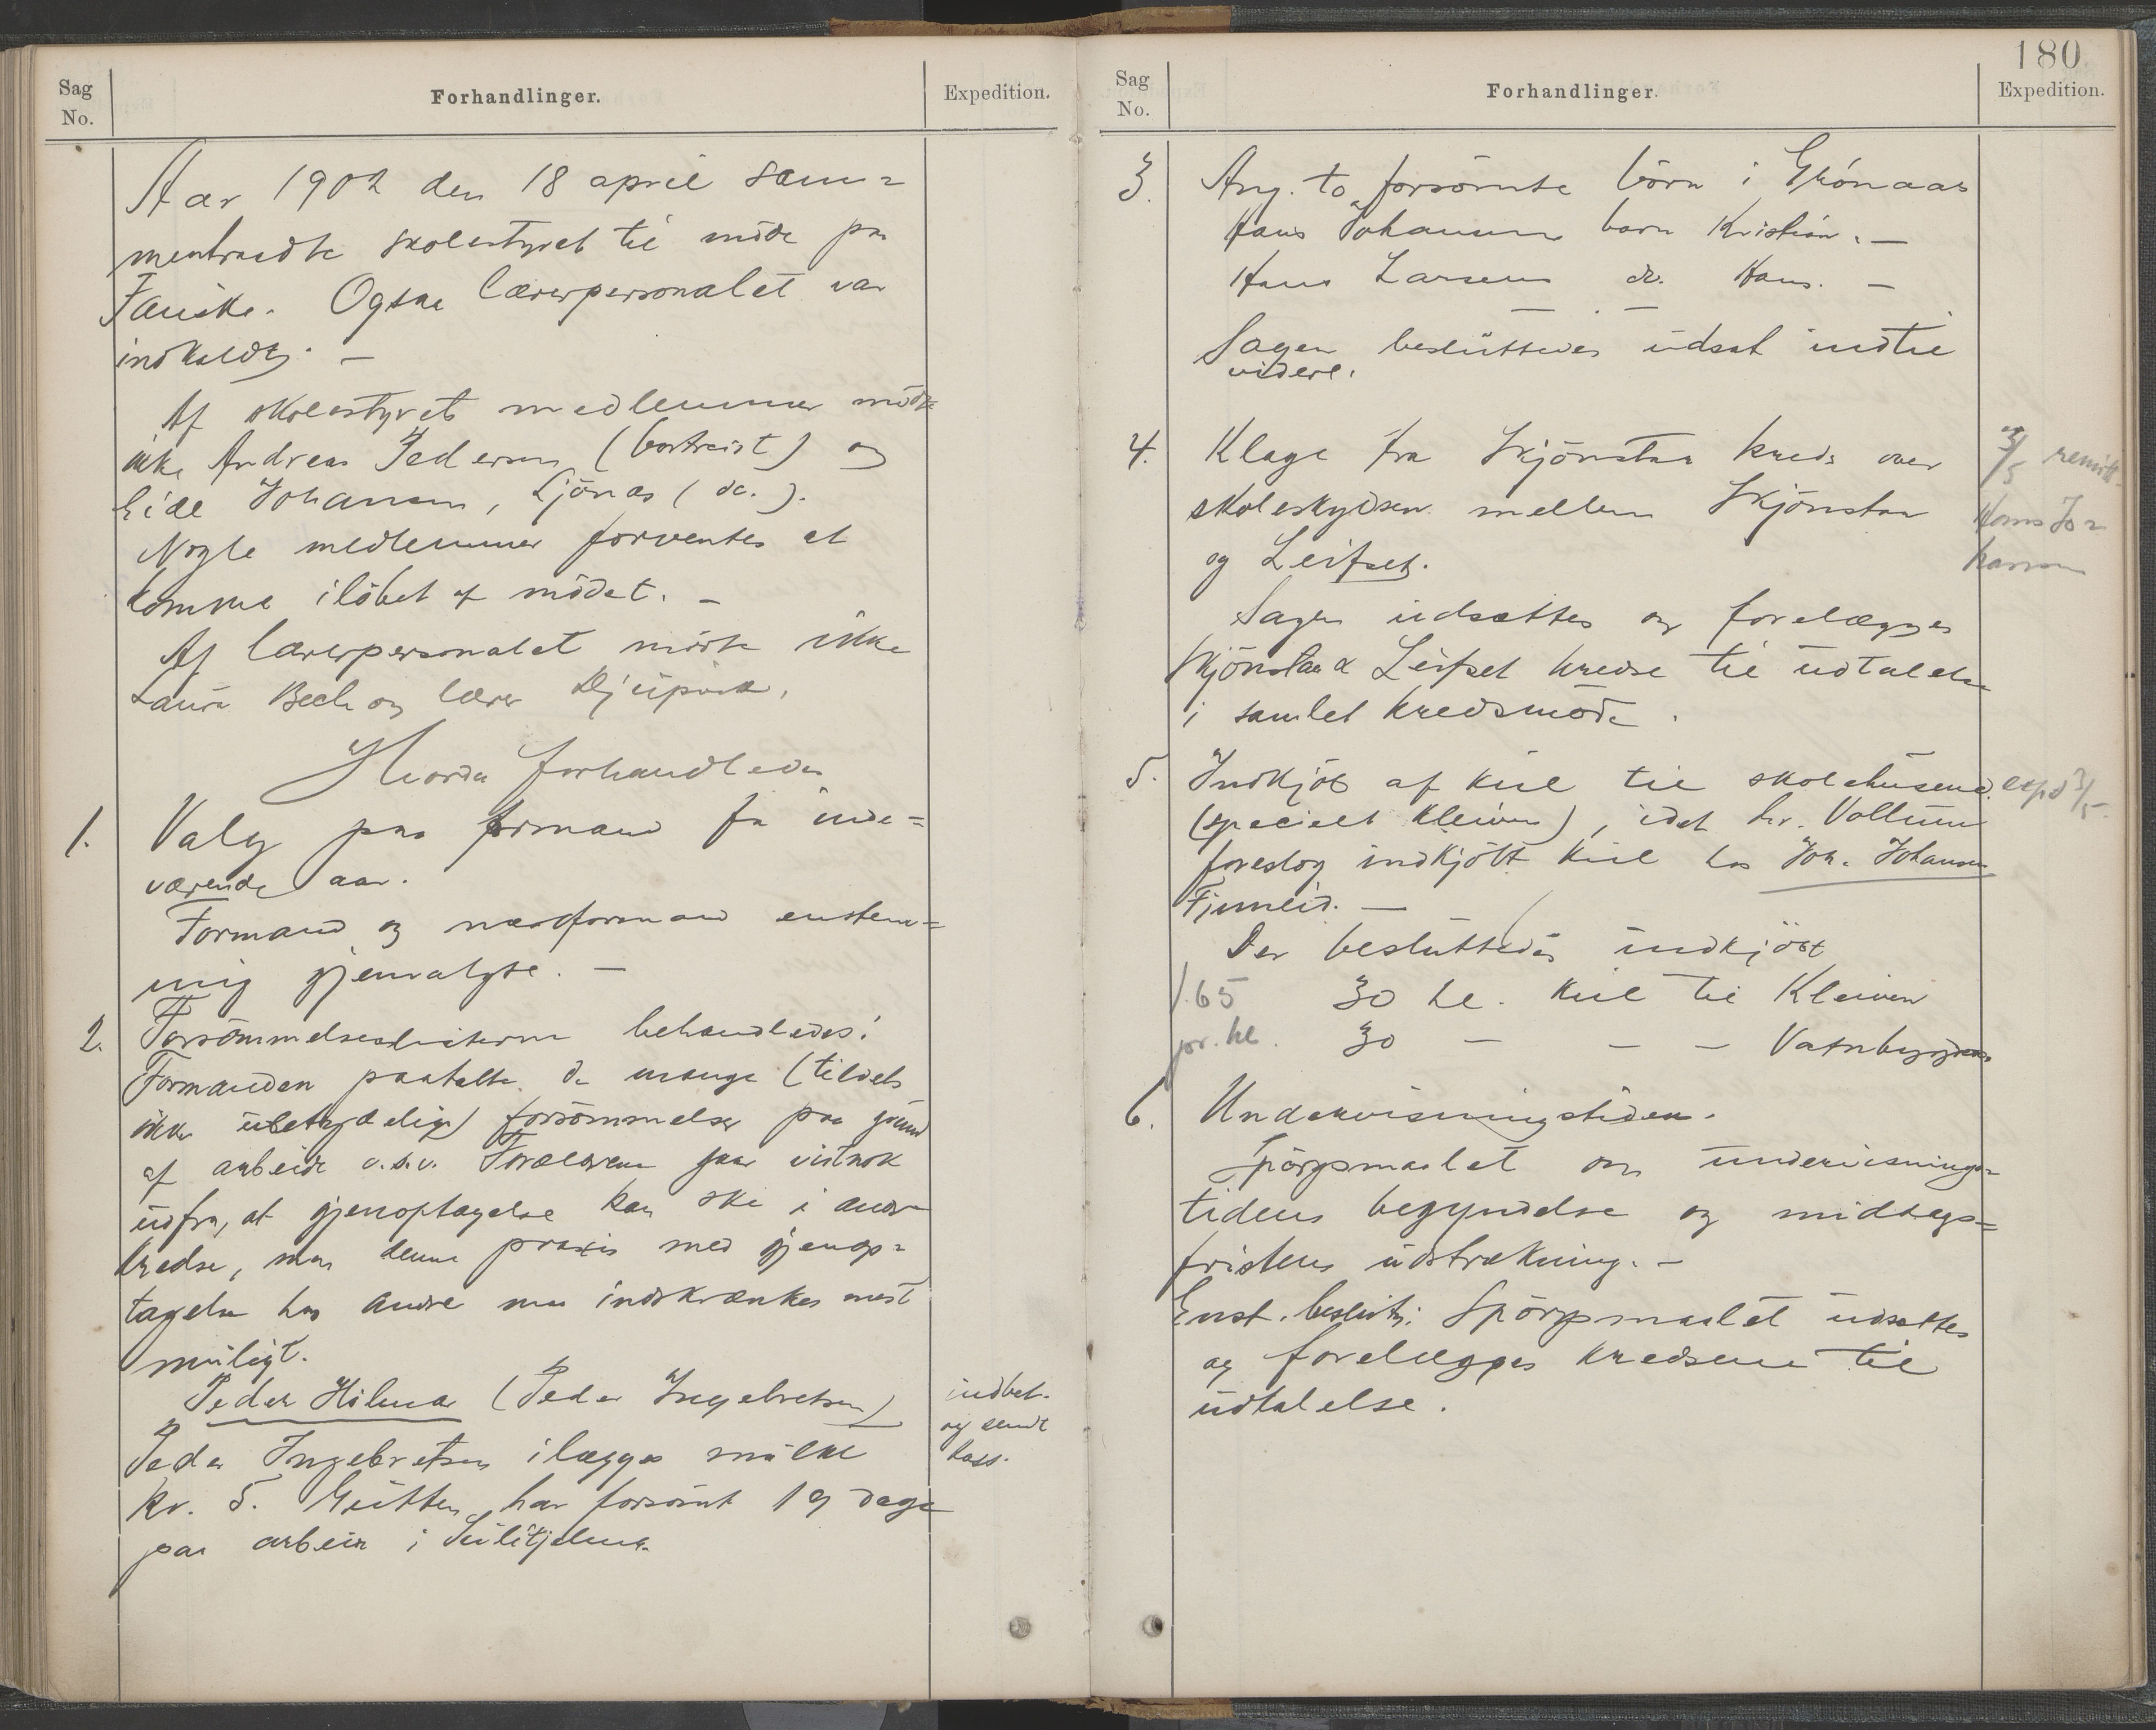 Sag
No.
Forhandlinger.
Expedition.
Aar 1902 den 18 april sam=
mentraadte skolestyret til möde paa
Fauske. Ogsaa lærerpersonalet var
indkaldt. –
Af skolestyrets medlemmer mödte
ikke Andreas Pedersen (bortreist) og
Eide Johansen, Ljönes (do.).
Nogle medlemmer forventes at
komme i löbet af mödet. –
Af lærerpersonalet mödte ikke
Laura Bech og lærer Djupvik.
Hvorda forhandledes
1. Valg paa formand for inde=
værende aar.
Formand og næstformand enstem=
mig gjenvalgte. –
2. Forsömmelseslisterne behandledes:
Formanden paatalte de mange (tildels
ikke ubetydelige) forsömmelser paa grund
af arbeide o.s.v. Forældrene gaar vistnok
ud fra, at gjenoptagelse kan ske i andre
kredse, men denne praxis med gjenop=
tagelse hos andre maa indskrænkes mest
muligt.
Peder Hilmar (Peder Ingebretsen)
Peder Ingebretsen ilægges mulkt
kr. 5. Gutten har forsömt 19 dage
paa arbeide i Sulitjelma.
indbet.
og sendt
kass.
180.
Sag
No.
Forhandlinger.
Expedition.
3. Ang. to forsömte börn i Grönaas
Hans Johansens barn Kristian. –
Hans Larsens do. Hans. –
Sagen besluttedes udsat indtil
videre.
4. Klage fra Skjönstaa kreds over
skoleskydsen mellem Skjönstaa
og Leifset.
Sagen udsættes og forelægges
Skjönstaa & Leifset kredse til udtalelse
i samlet kredsmöde.
3/5 remitt.
Hans Jo=
hansen
5. Indkjöb af kul til skolehusene
(specielt Kleiven), idet hr. Vollum
foreslog indkjöbt kul hos Joh. Johansen
Finneid. –
exp. 3/5.
Der besluttedes indkjöbt
1.65 30 hl. kul til Kleiven
pr. hl. 30 – – – Vatnbygden
6. Undervisningstiden.
Spörgsmaalet om undervisnings=
tidens begyndelse og middags=
fristens udstrækning. –
Enst. beslutn: Spörgsmaalet udsættes
og forelægges kredsene til
udtalelse.